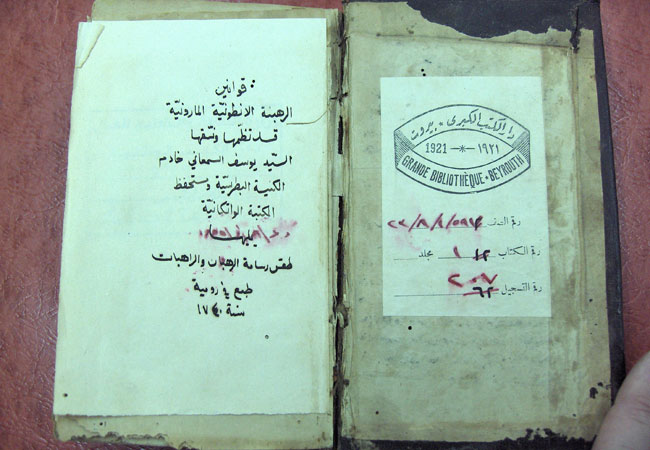 قوانين
الرهبنة الانطونيّة المارونيّة
قد نظمها ونسّقها
السيّد يوسف السمعاني خادم
الكنيسة البطرسيّة ومستحفظ
المكتبة الواتكانيّة
يليها
طقس رسامة الرهبان والراهبات
طبع في رومية
سنة ١٧٤٠
دار الكتب الكبرى • بيروت
1921 ١٩٢١
GRANDE BIBLIOTHÈQUE • BEYROUTH
رقم الصنف
رقم الكتاب مجلد
رقم التسجيل ٢٠٧